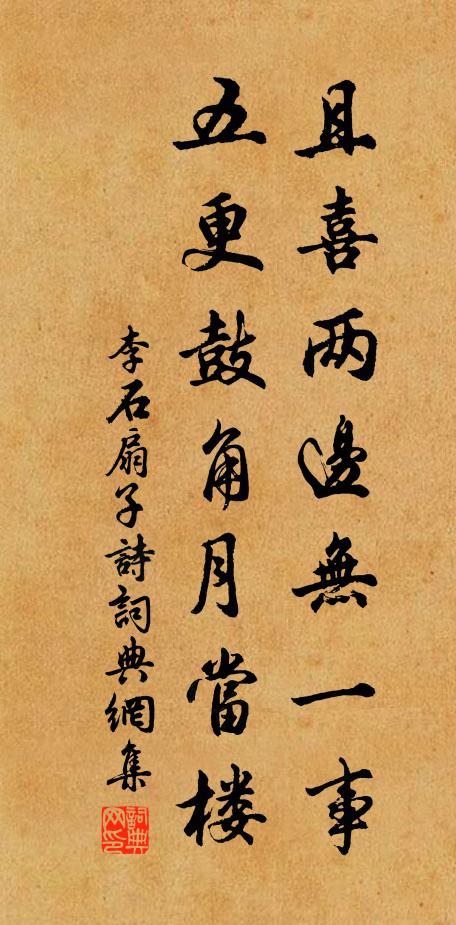 且喜两邊無一事
五更鼓角月當楼
李石扇子詩詞典網集
詞典網印